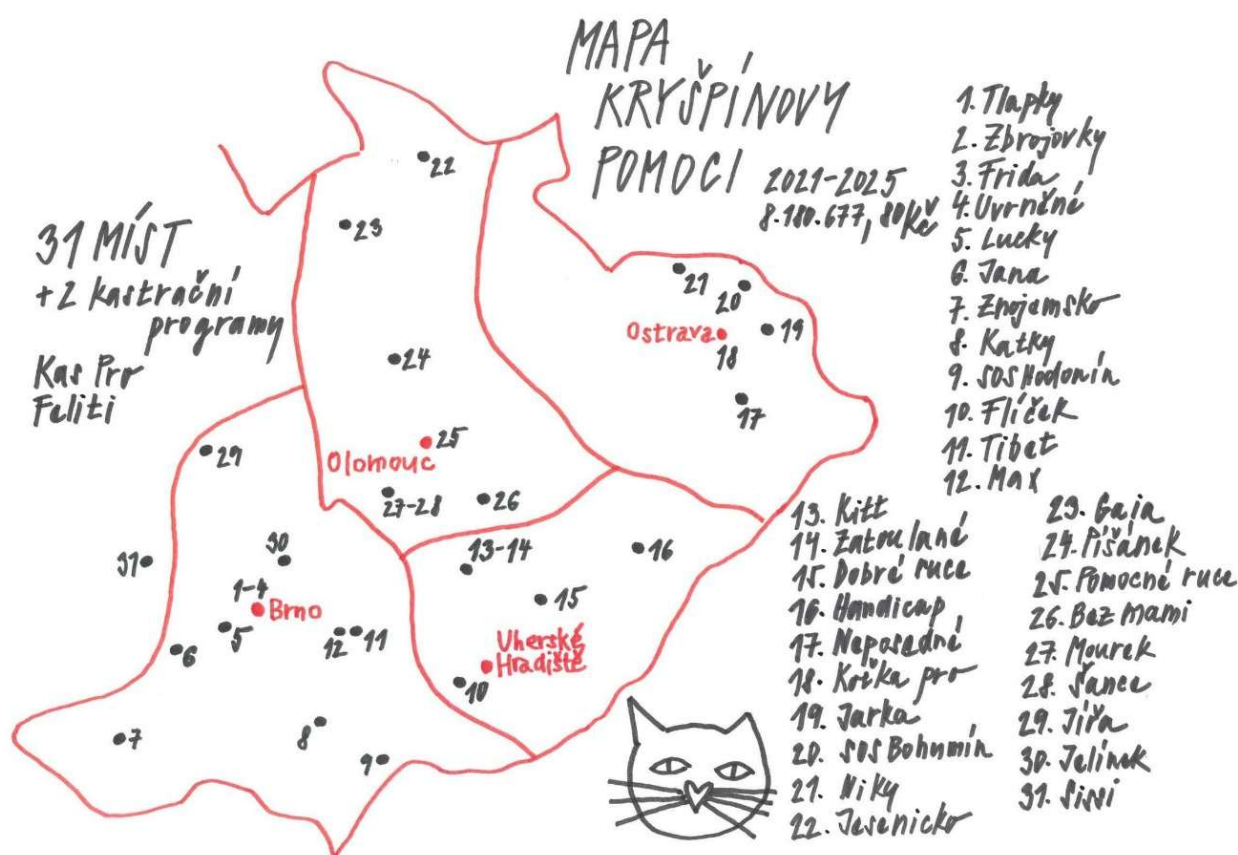 MAPA
KRYŠPÍNOVY
POMOCI
2021-2025
8.180.677,80Kč
31 MÍST
+2 kastrační
programy
Kas Pro
Feliti
22
23
24
25
Olomouc
27-28
26
21
20
19
Ostrava
18
17
29
31
30
1-4
Brno
5
6
12
11
7
8
9
13-14
16
15
Uherské
Hradiště
10
1. Tlapky
2. Zbrojovky
3. Frida
4. Uvrněné
5. Lucky
6. Jana
7. Znojemsko
8. Katky
9. SOS Hodonín
10. Flíček
11. Tibet
12. Max
13. Kitt
14. Zatoulané
15. Dobré ruce
16. Handicap
17. Neposedné
18. Kočka pro
19. Jarka
20. SOS Bohumín
21. Niky
22. Jesenicko
23. Gaja
24. Píšánek
25. Pomocné ruce
26. Bez mami
27. Mourek
28. Šance
29. Jířa
30. Jelínek
31. Sissi